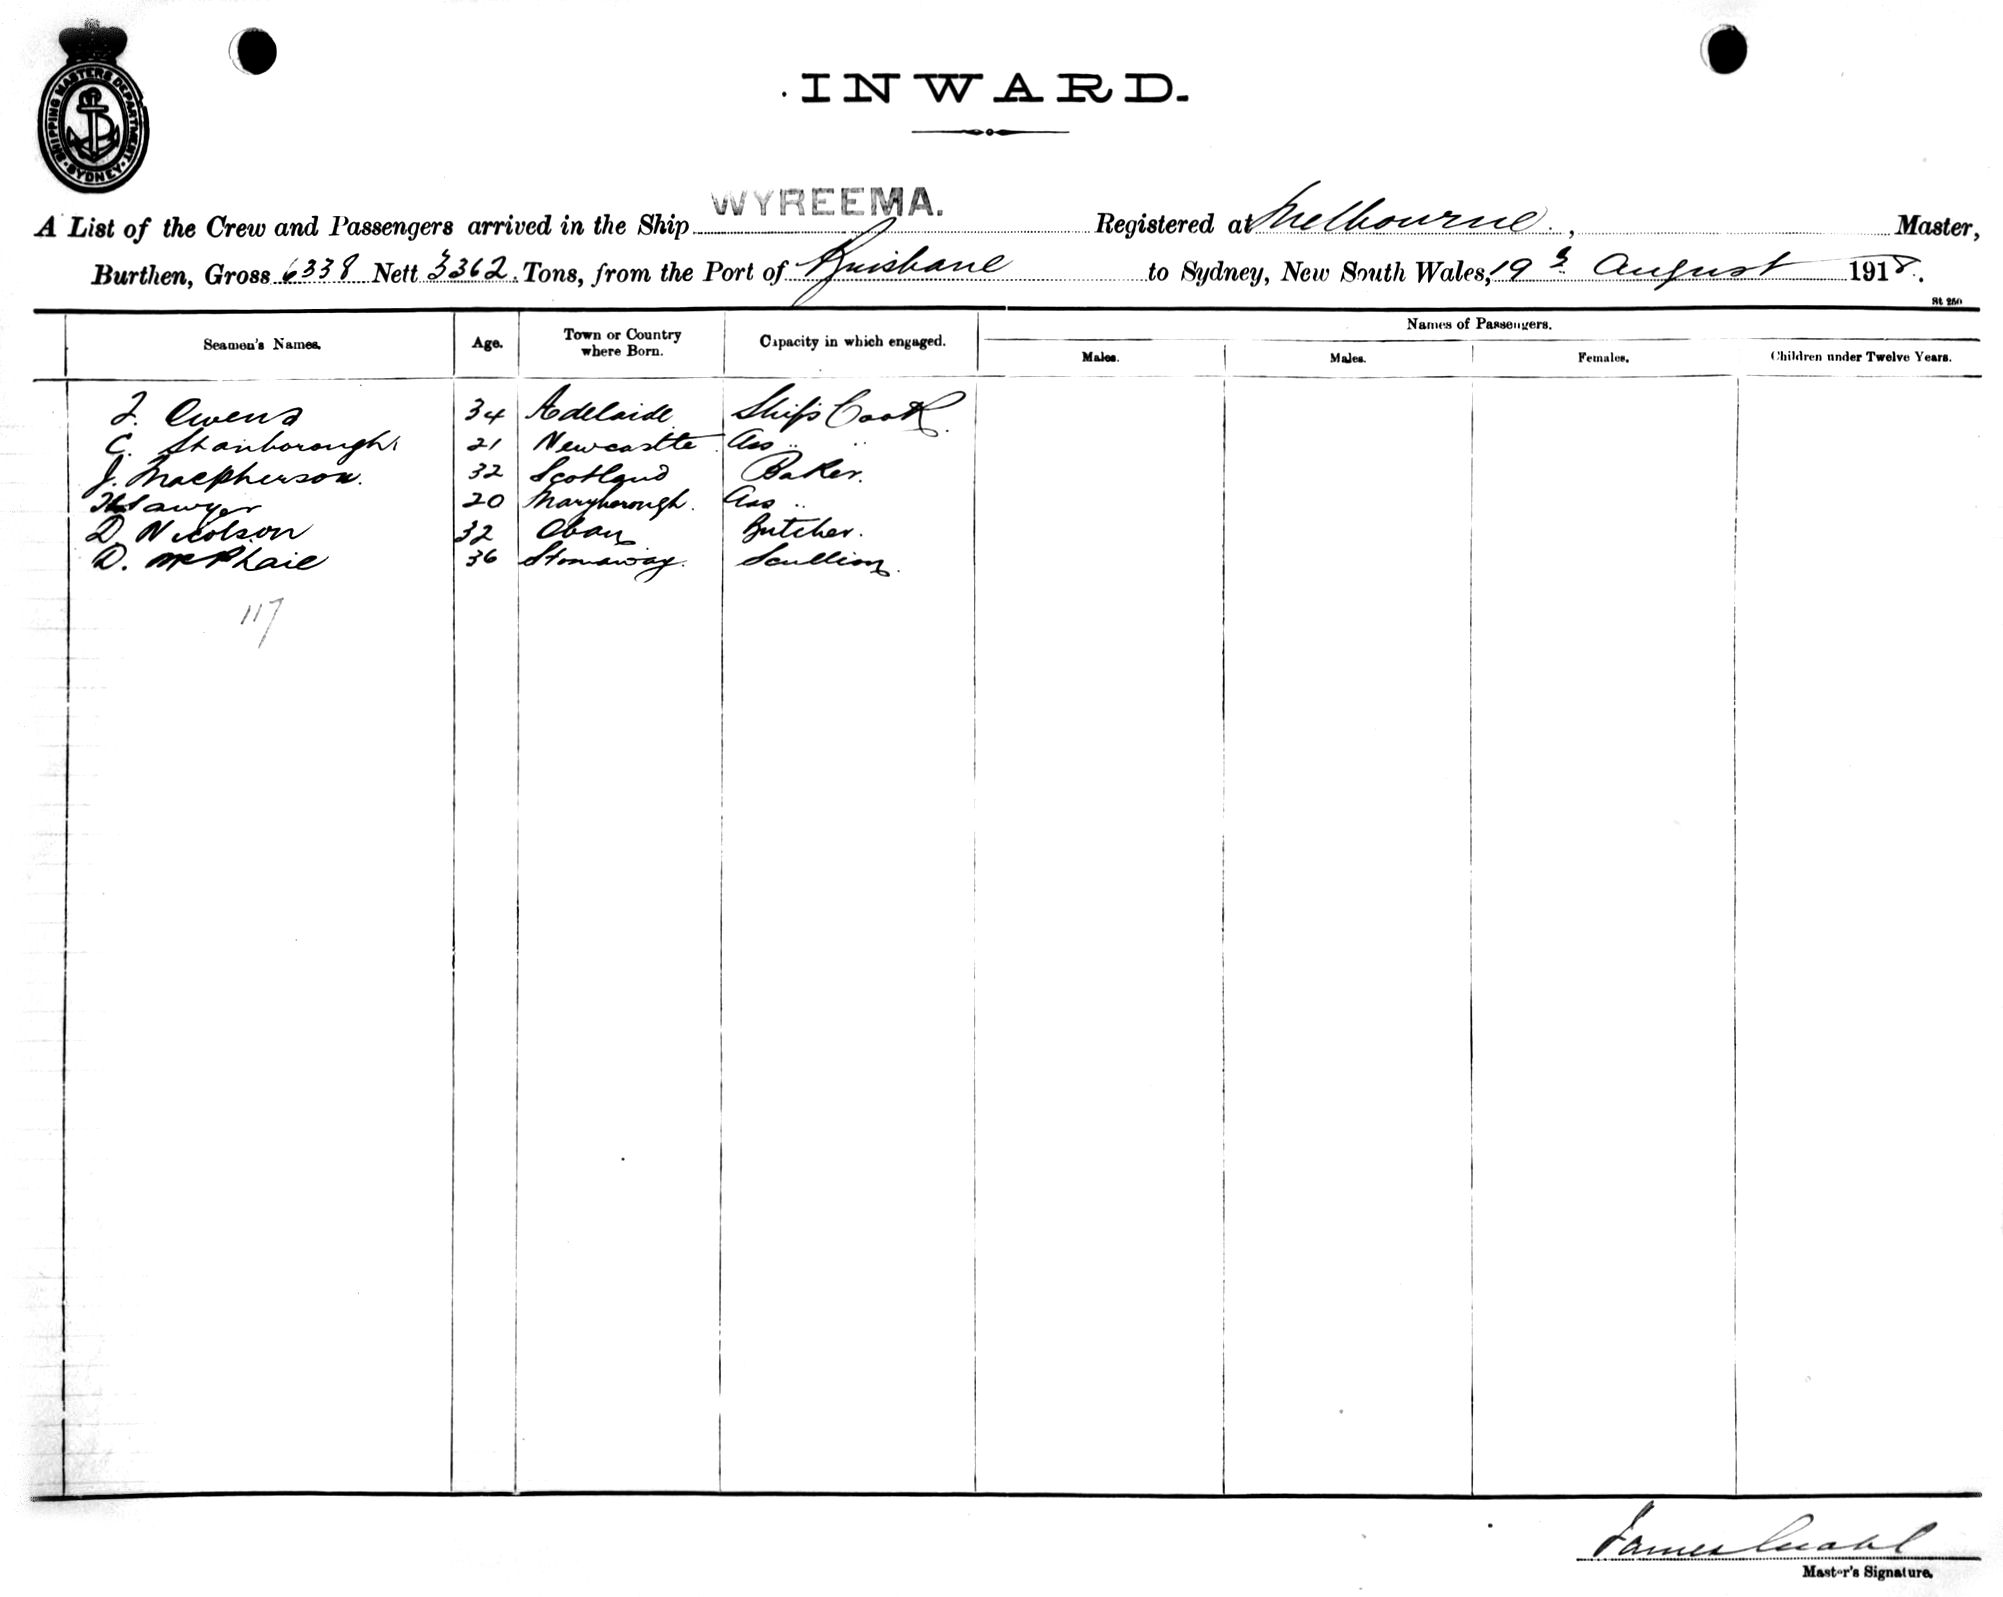 SHIPPING MASTERS DEPARTMENT
SYDNEY
INWARD.
A List of the Crew and Passengers arrived in the Ship WYREEMA. Registered at Melbourne, Master,
Burthen, Gross 6338 Nett 3362 Tons, from the Port of Brisbane to Sydney, New South Wales, 19 August 1918.
St 250
Seamen's Names. Age. Town or Country where Born. Capacity in which engaged. Names of Passengers.
Males. Males. Females. Children under Twelve Years.
Owens 34 Adelaide Ship's Cook.
C. Stanborough 21 Newcastle Ass " "
J. Macpherson. 32 Scotland Baker.
Sawyer 20 Maryborough. Ass "
D. Nicolson 32 Oban Butcher.
D. McPhail 36 Stornaway. Scullion.
117
James
Master's Signature.